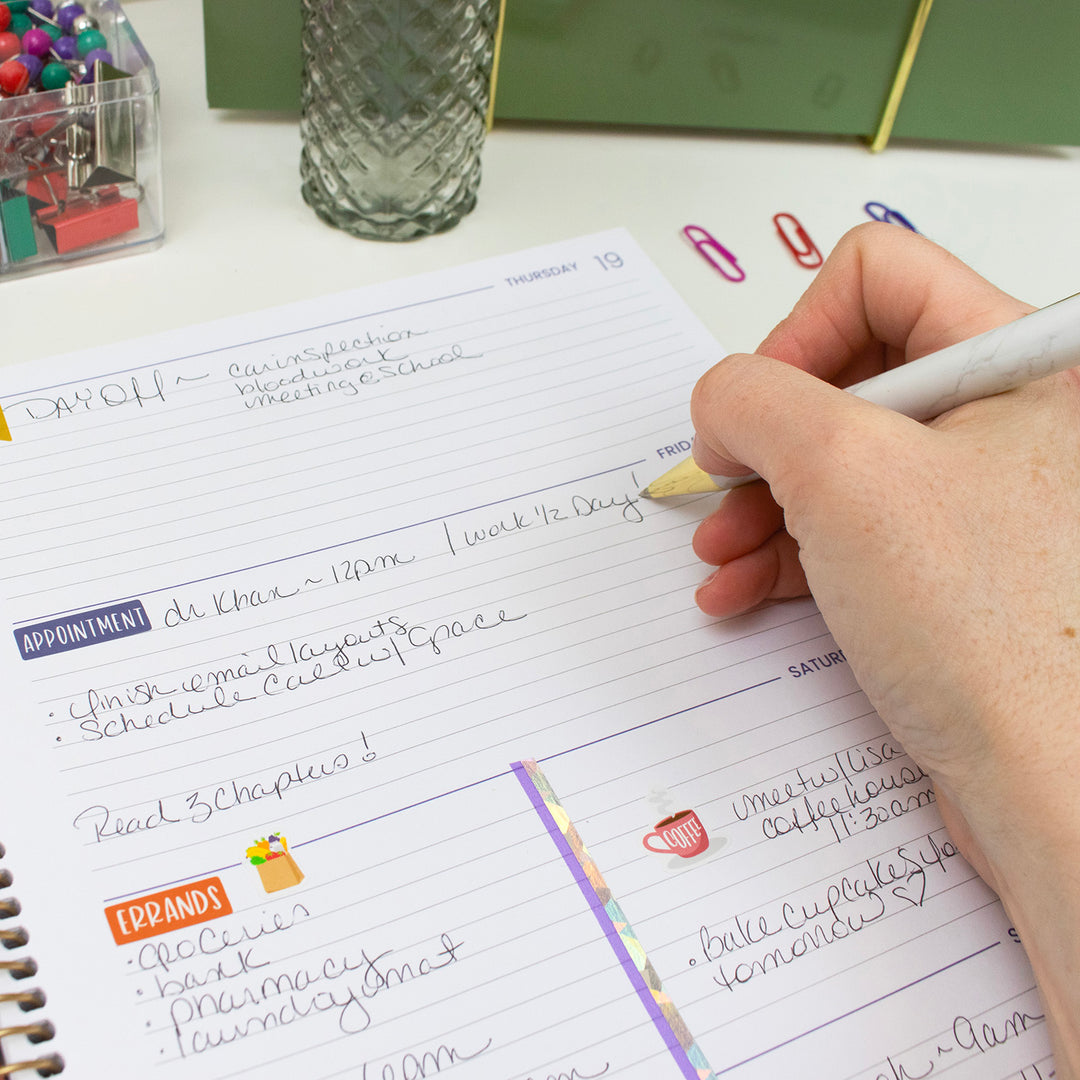 THURSDAY 19
DAY OFF ~ car inspection
bloodwork
meeting @ School
FRID
APPOINTMENT dr Khan ~ 12pm | work 1/2 Day!
• finish email layouts
• Schedule Call w/ Grace
Read 3 Chapters!
SATUR
ERRANDS
• groceries
• bank
• pharmacy
• laundry mat
COFFEE
meet w/ Lisa
coffeehouse
11:30am
• Bake cupcakes fo
tomorrow ♡
S
~ 9am
am